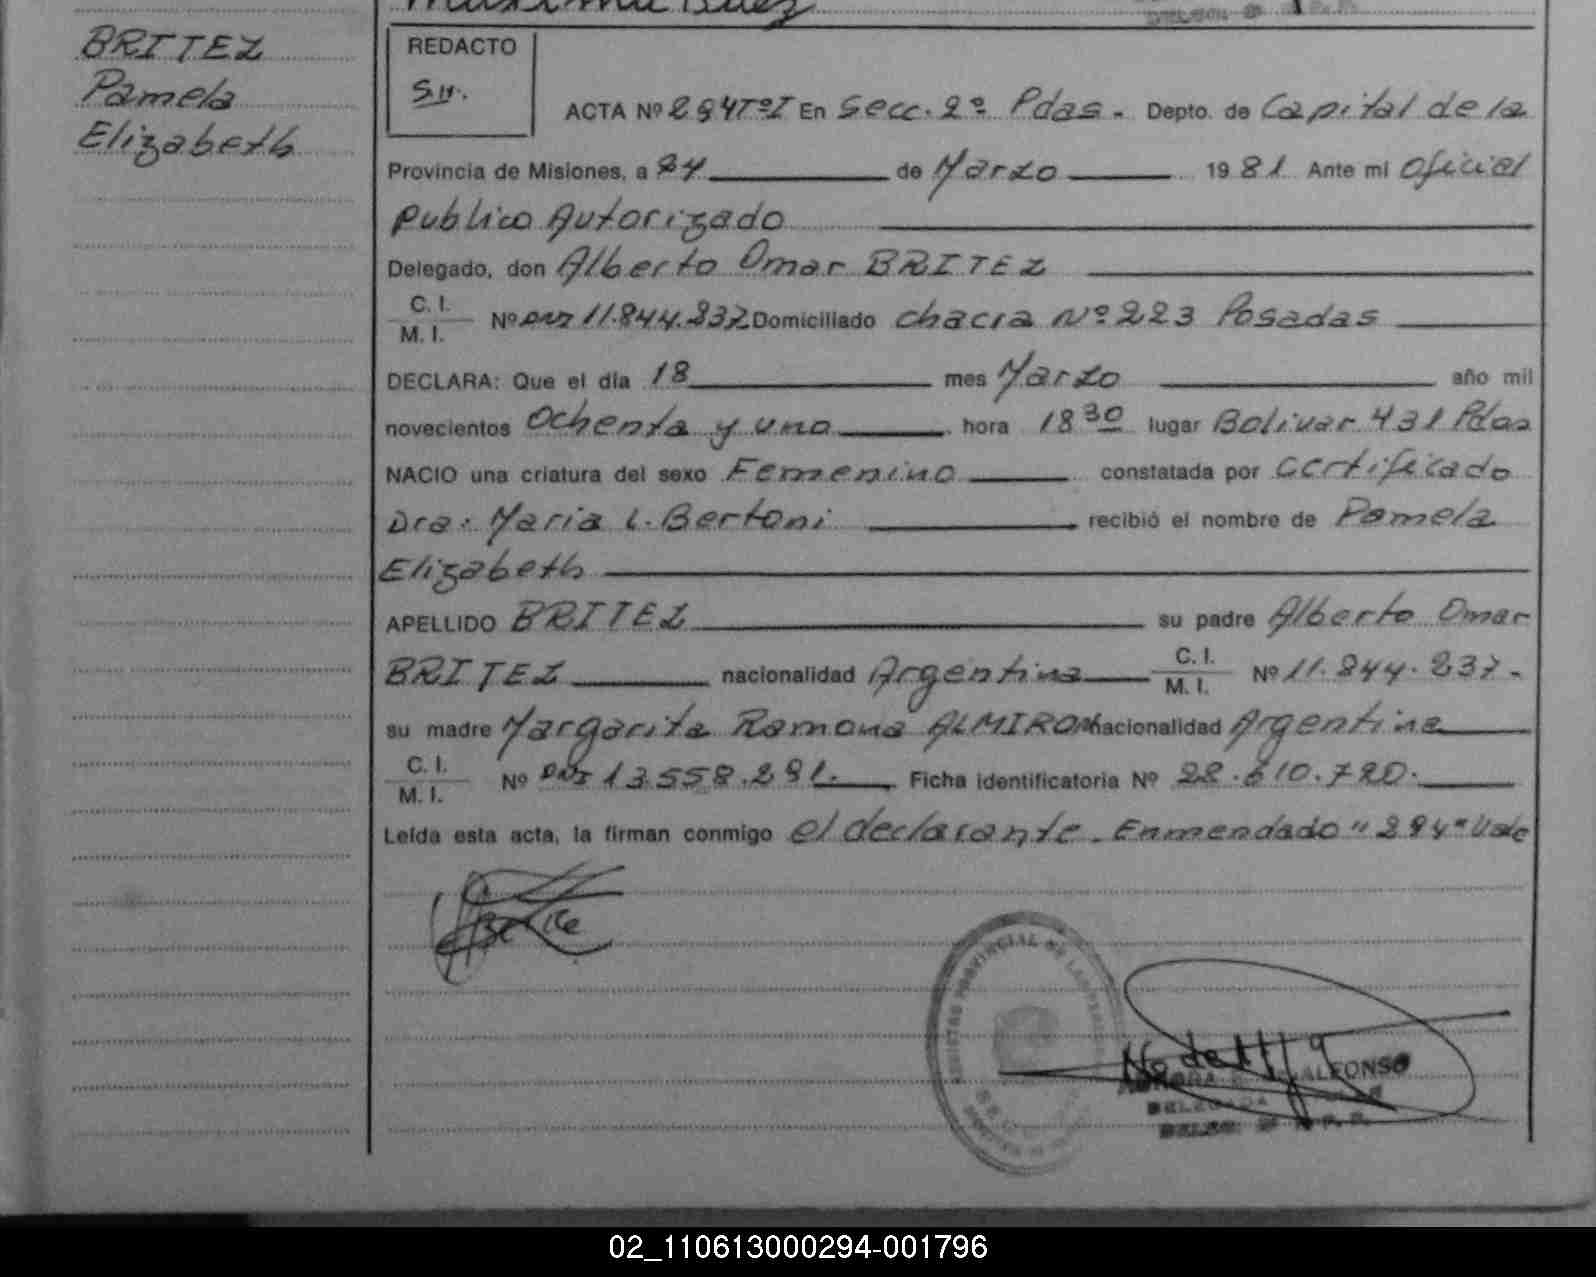 Maxima Baez
BRITEZ
Pamela
Elizabeth
REDACTO
ACTA Nº 294 TºI En Secc. 2º Pdas - Depto. de Capital de la
Provincia de Misiones, a 24 de Marzo 1981 Ante mi Oficial
Publico Autorizado
Delegado, don Alberto Omar BRITEZ
C. I.
M. I. Nº DNI 11.844.237 Domiciliado chacra Nº 223 Posadas
DECLARA: Que el día 18 mes Marzo año mil
novecientos Ochenta y uno hora 18 30 lugar Bolivar 431 Pdas
NACIO una criatura del sexo Femenino constatada por Certificado
Dra. Maria L. Bertoni recibió el nombre de Pamela
Elizabeth
APELLIDO BRITEZ su padre Alberto Omar
BRITEZ nacionalidad Argentina C. I. M. I. Nº 11.844.237.-
su madre Margarita Ramona ALMIRON nacionalidad Argentina
C. I.
M. I. Nº DNI 13.558.291. Ficha identificatoria Nº 28.610.720.
Leída esta acta, la firman conmigo el declarante. Enmendado "294" Vale
REGISTRO PROVINCIAL DE LAS PERSONAS
ALFONSO
DELEGADA
02_110613000294-001796